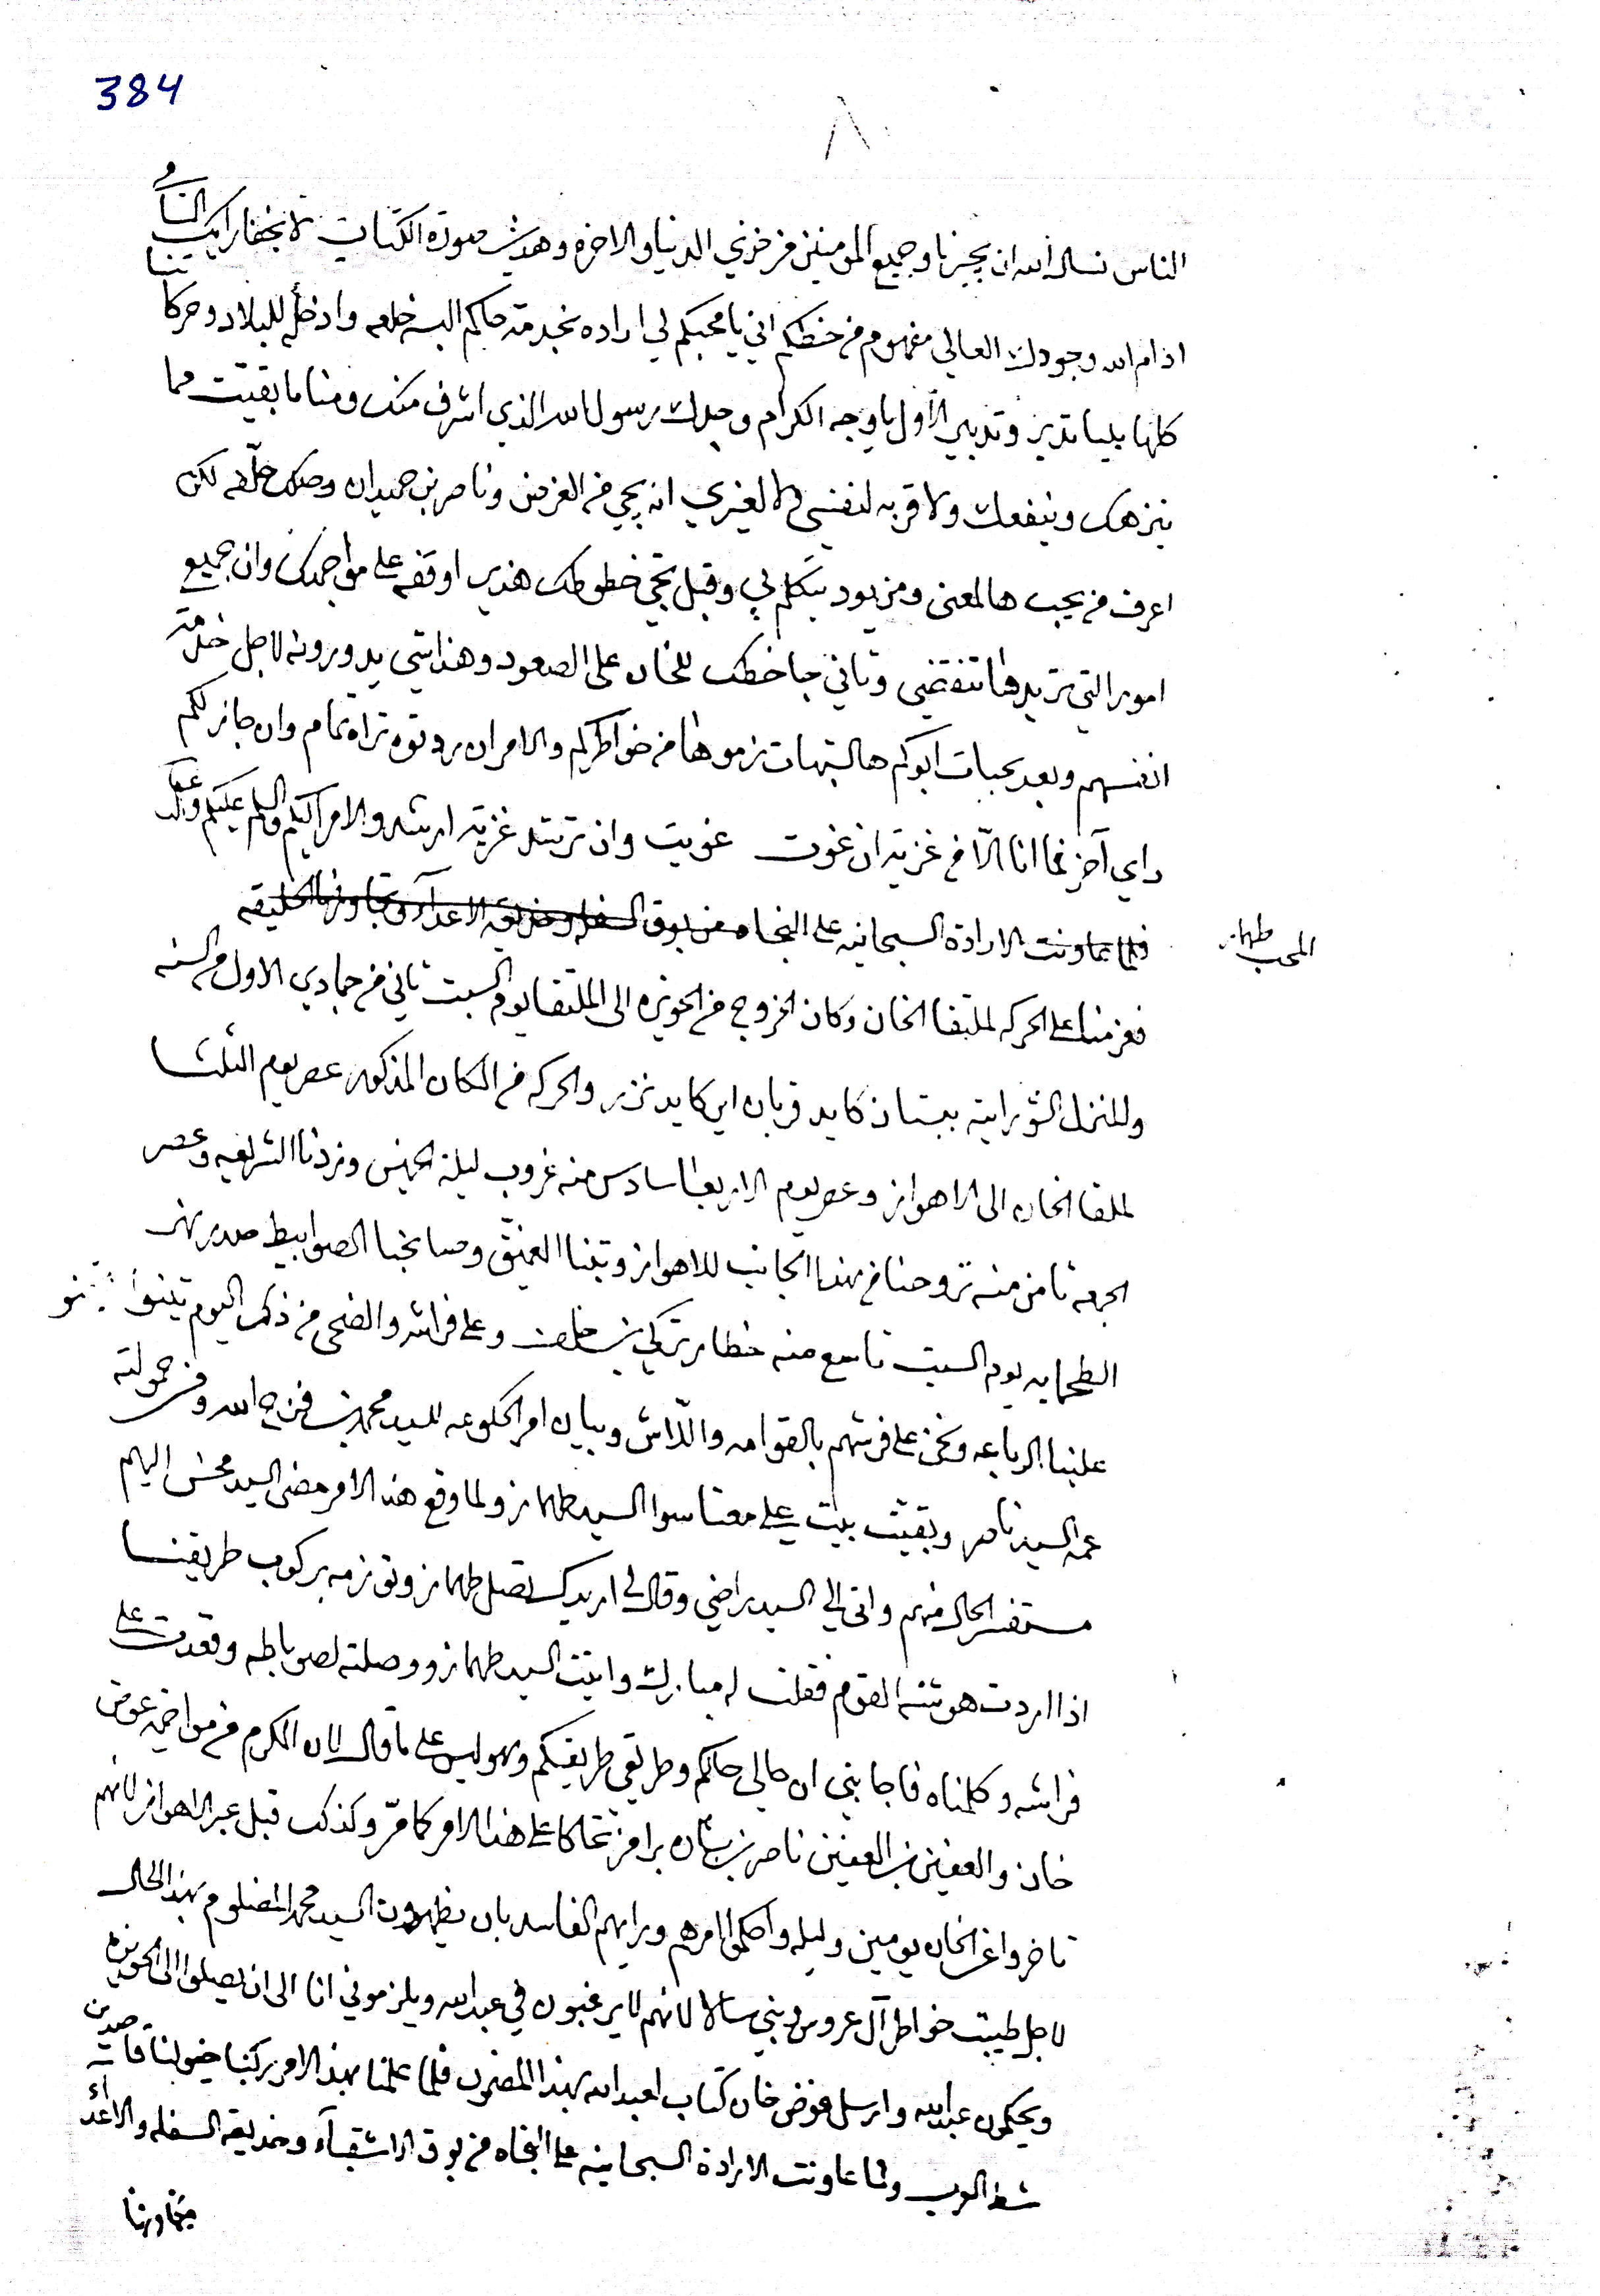 384
الناس نسال الله ان يجيرنا وجميع المومنين من خزي الدنيا والاخره وهذيث صورة الكتابت لا يخفا رايك السامي
ادام الله وجودك العالي مفهوم من خطكم اني يا محبكم لي اراده بخدمة حاكم البسه خلعه وادخله للبلاد وحركا تنا
كلها بليا تدبر وتدبير الاول يا وجه الكرام وجدك رسول الله الذي اشرف منك ومنا ما بقيت مما
ينزهك وينفعك ولا قربه لنفسي ولا لغيري انه يجي من الغرض وناصر بن حميدان وصلك حلّفه لكن
اعرف من يحب هالمعنى ومن يود يتكلم بي وقبل تجي خطوطك هذي اوقفه على مواجهك وان جميع
امور التي تريدها تنقضي وثاني جا خطك للخان على الصعود وهذا شي يدورونه لاجل خدمة
انفسهم وبعد بحيات ابوكم هالشبهات زموها من خواطركم والامر ان ردتوه تراه تمام وان جاز لكم
راي آخر فما انا الّا من غزية ان غوت غويت وان ترشد غزية ارشد والامر اليكم والسلم عليكم
المحب طهماز
فلما تعاونت الارادة السبحانيه على النجاه من بوق السفله وخديقة الاعدآء وتجاوزنا الخليقه
فعزمنا على الحركه لملتقا الخان وكان الخروج من الحويزه الى الملتقا يوم السبت ثاني من جمادي الاول من السنه
وللمنزل الشورابيه ببستان كايد قربان اير كايد نزر والحركه من المكان المذكور عصر يوم الثلثا
لملقا الخان الى الاهواز وعصر يوم الاربعا سادس منه غروب ليلة الخميس وردنا الشريعه وعصر
الجمعه ثامن منه تروحنا من هذا الجانب للاهواز وبتنا العميّق وصابحنا الصوابيط صدر نهر
الطحمايه يوم السبت تاسع منه خطار تركي بن خلف وعلى فراشه والضحى من ذلك اليوم تبينوا
علينا الرباعه ونحن على فرشهم بالقوامه واللّاش وبيان امر الحكومه للسيد محمد بن فرج الله ومن حمولته
عمه السيد ناصر وبقيت بيت علي معنا سوا السيد طهماز ولما وقع هذا الامر مضى السيد محسن اليهم
مستفسر الحال منهم واتى لي السيد راضي وقال لي اريدك تصل طهماز وتوزمه بركوب طريقنا
اذا اردت هوشة القوم فقلت له مبارك واتيت السيد طهماز ووصلته لصوباطه وقعدت على
فراشه وكلمناه فاجابني ان حالي حالكم وطريقي طريقكم وهو ليس على ما قال لان الكرم من مواخيه عوض
خان والعفين بن العفين ناصر بن برامز تحاكا على هذا الامر كما مرّ وكذلك قبل عبر الاهواز لانهم
تاخروا عن الخان يومين وليله واحكموا امرهم ورايهم الفاسد بان يظهرون السيد محمد المضلوم بهذا الحال
لاجل طيبت خواطر آل عروس وبني ساله لانهم لا يرغبون في عبد الله ويلزموني انا الى ان يصلوا الى الحويزه
ويحكمون عبد الله وارسل عوض خان كتاب لعبد الله بهذا المضمون فلما علمنا بهذا الامر ركبنا خيولنا قاصدين
شط العرب ولما عاونت الارادة السبحانيه على النجاه من بوق الاشقيآء وخديقة السفله والاعداء
تجاوزنا